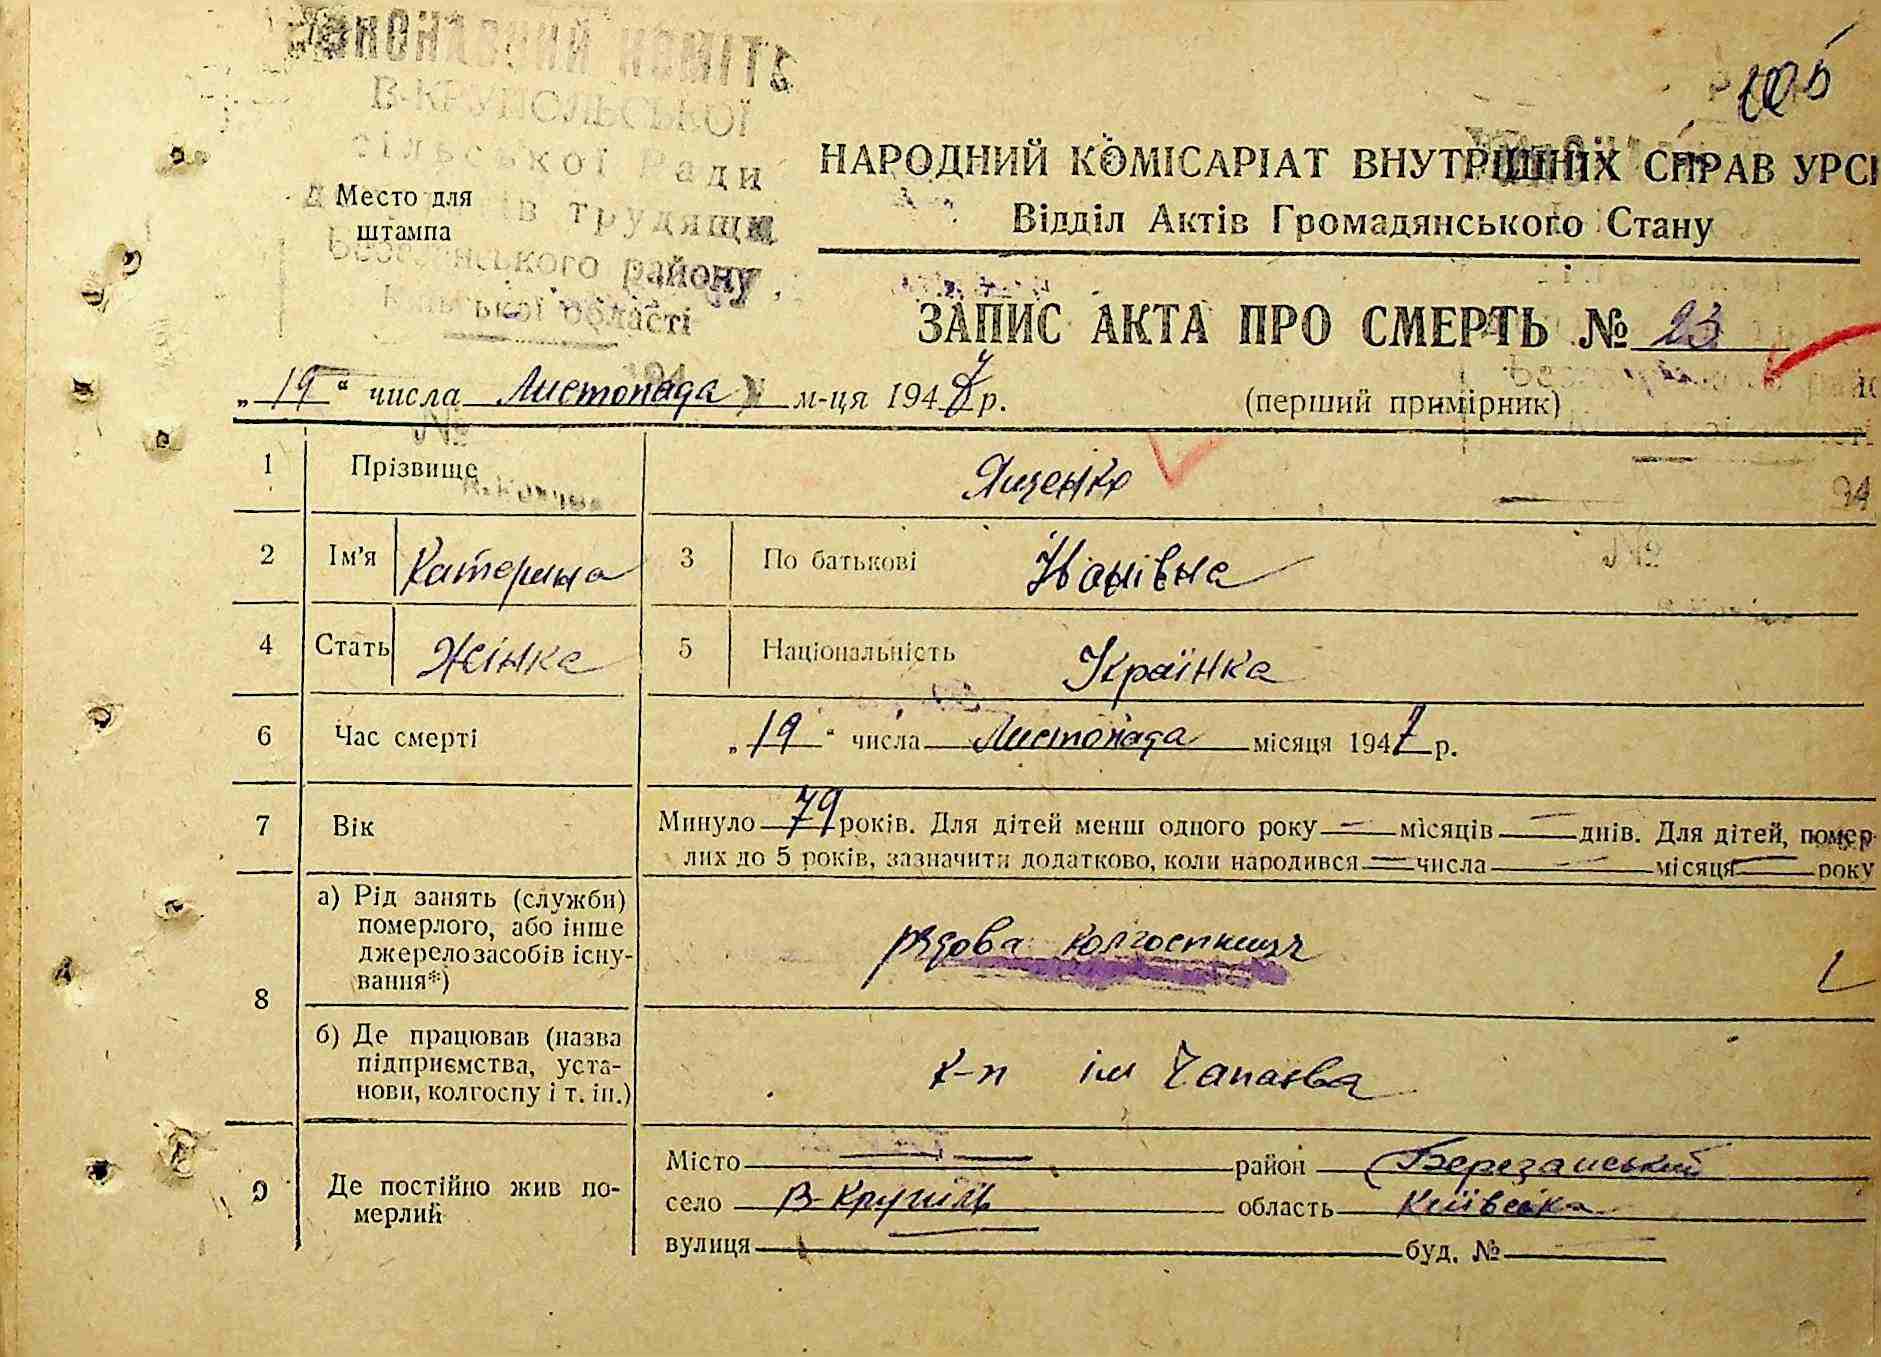 В-КРУПОЛЬСЬКОЇ
сільської Ради
трудящих
Березанського району
Київської області
Место для
штампа
НАРОДНИЙ КОМІСАРІАТ ВНУТРІШНІХ СПРАВ УРСР
Відділ Актів Громадянського Стану
ЗАПИС АКТА ПРО СМЕРТЬ № 23
„19“ числа Листопада м-ця 1947 р. (перший примірник)
1 Прізвище Яценко
2 Ім'я Катерина 3 По батькові Іванівна
4 Стать Жінка 5 Національність Українка
6 Час смерті „19“ числа Листопада місяця 1947 р.
7 Вік Минуло 79 років. Для дітей менш одного року — місяців — днів. Для дітей, помер-
лих до 5 років, зазначити додатково, коли народився — числа — місяця — року
8 а) Рід занять (служби)
померлого, або інше
джерело засобів існу-
вання*)
рядова колгоспниця
б) Де працював (назва
підприємства, уста-
нови, колгоспу і т. ін.)
к-п ім Чапаєва
9 Де постійно жив по-
мерлий
Місто — район Березанський
село В-Крупіль область Київська
вулиця — буд. № —